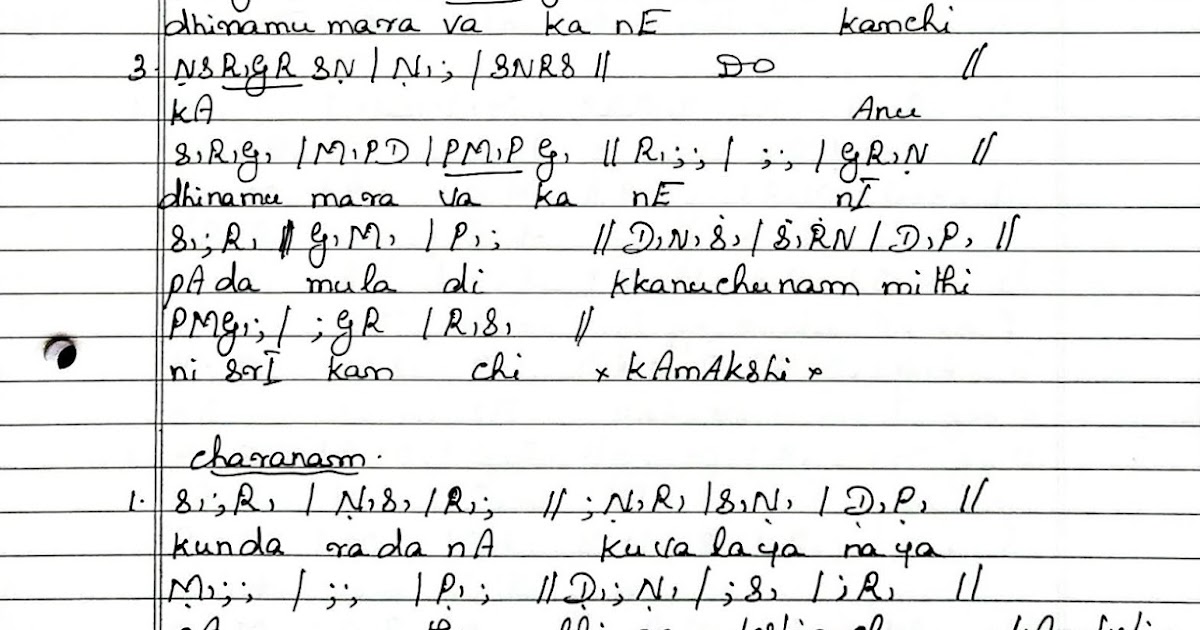 dhinamu mara va ka nE kanchi
3. ṆSR,GR SṆ / Ṇ,; / SNRS // DO //
kA Anu
S,R,G, / M,PD / PM,P G, // R,;; / ;;, / GR,Ṇ //
dhinamu mara va ka nE nI
S,;R, // G,M, / P,; // D,N,Ṡ, / Ṡ,ṘN / D,P, //
pAda mula di kkanuchunam mithi
PMG,; / ;GR / R,S, //
ni SrI kan chi × kAmAkshi ×
charanam.
1. S,;R, / Ṇ,S, / R,; // ;Ṇ,R, / S,Ṇ, / Ḍ,P̣, //
kunda rada nA kuva laya naya
Ṃ,;; / ;;, / P̣,; // Ḍ,;Ṇ, / ;S, / ;R, //